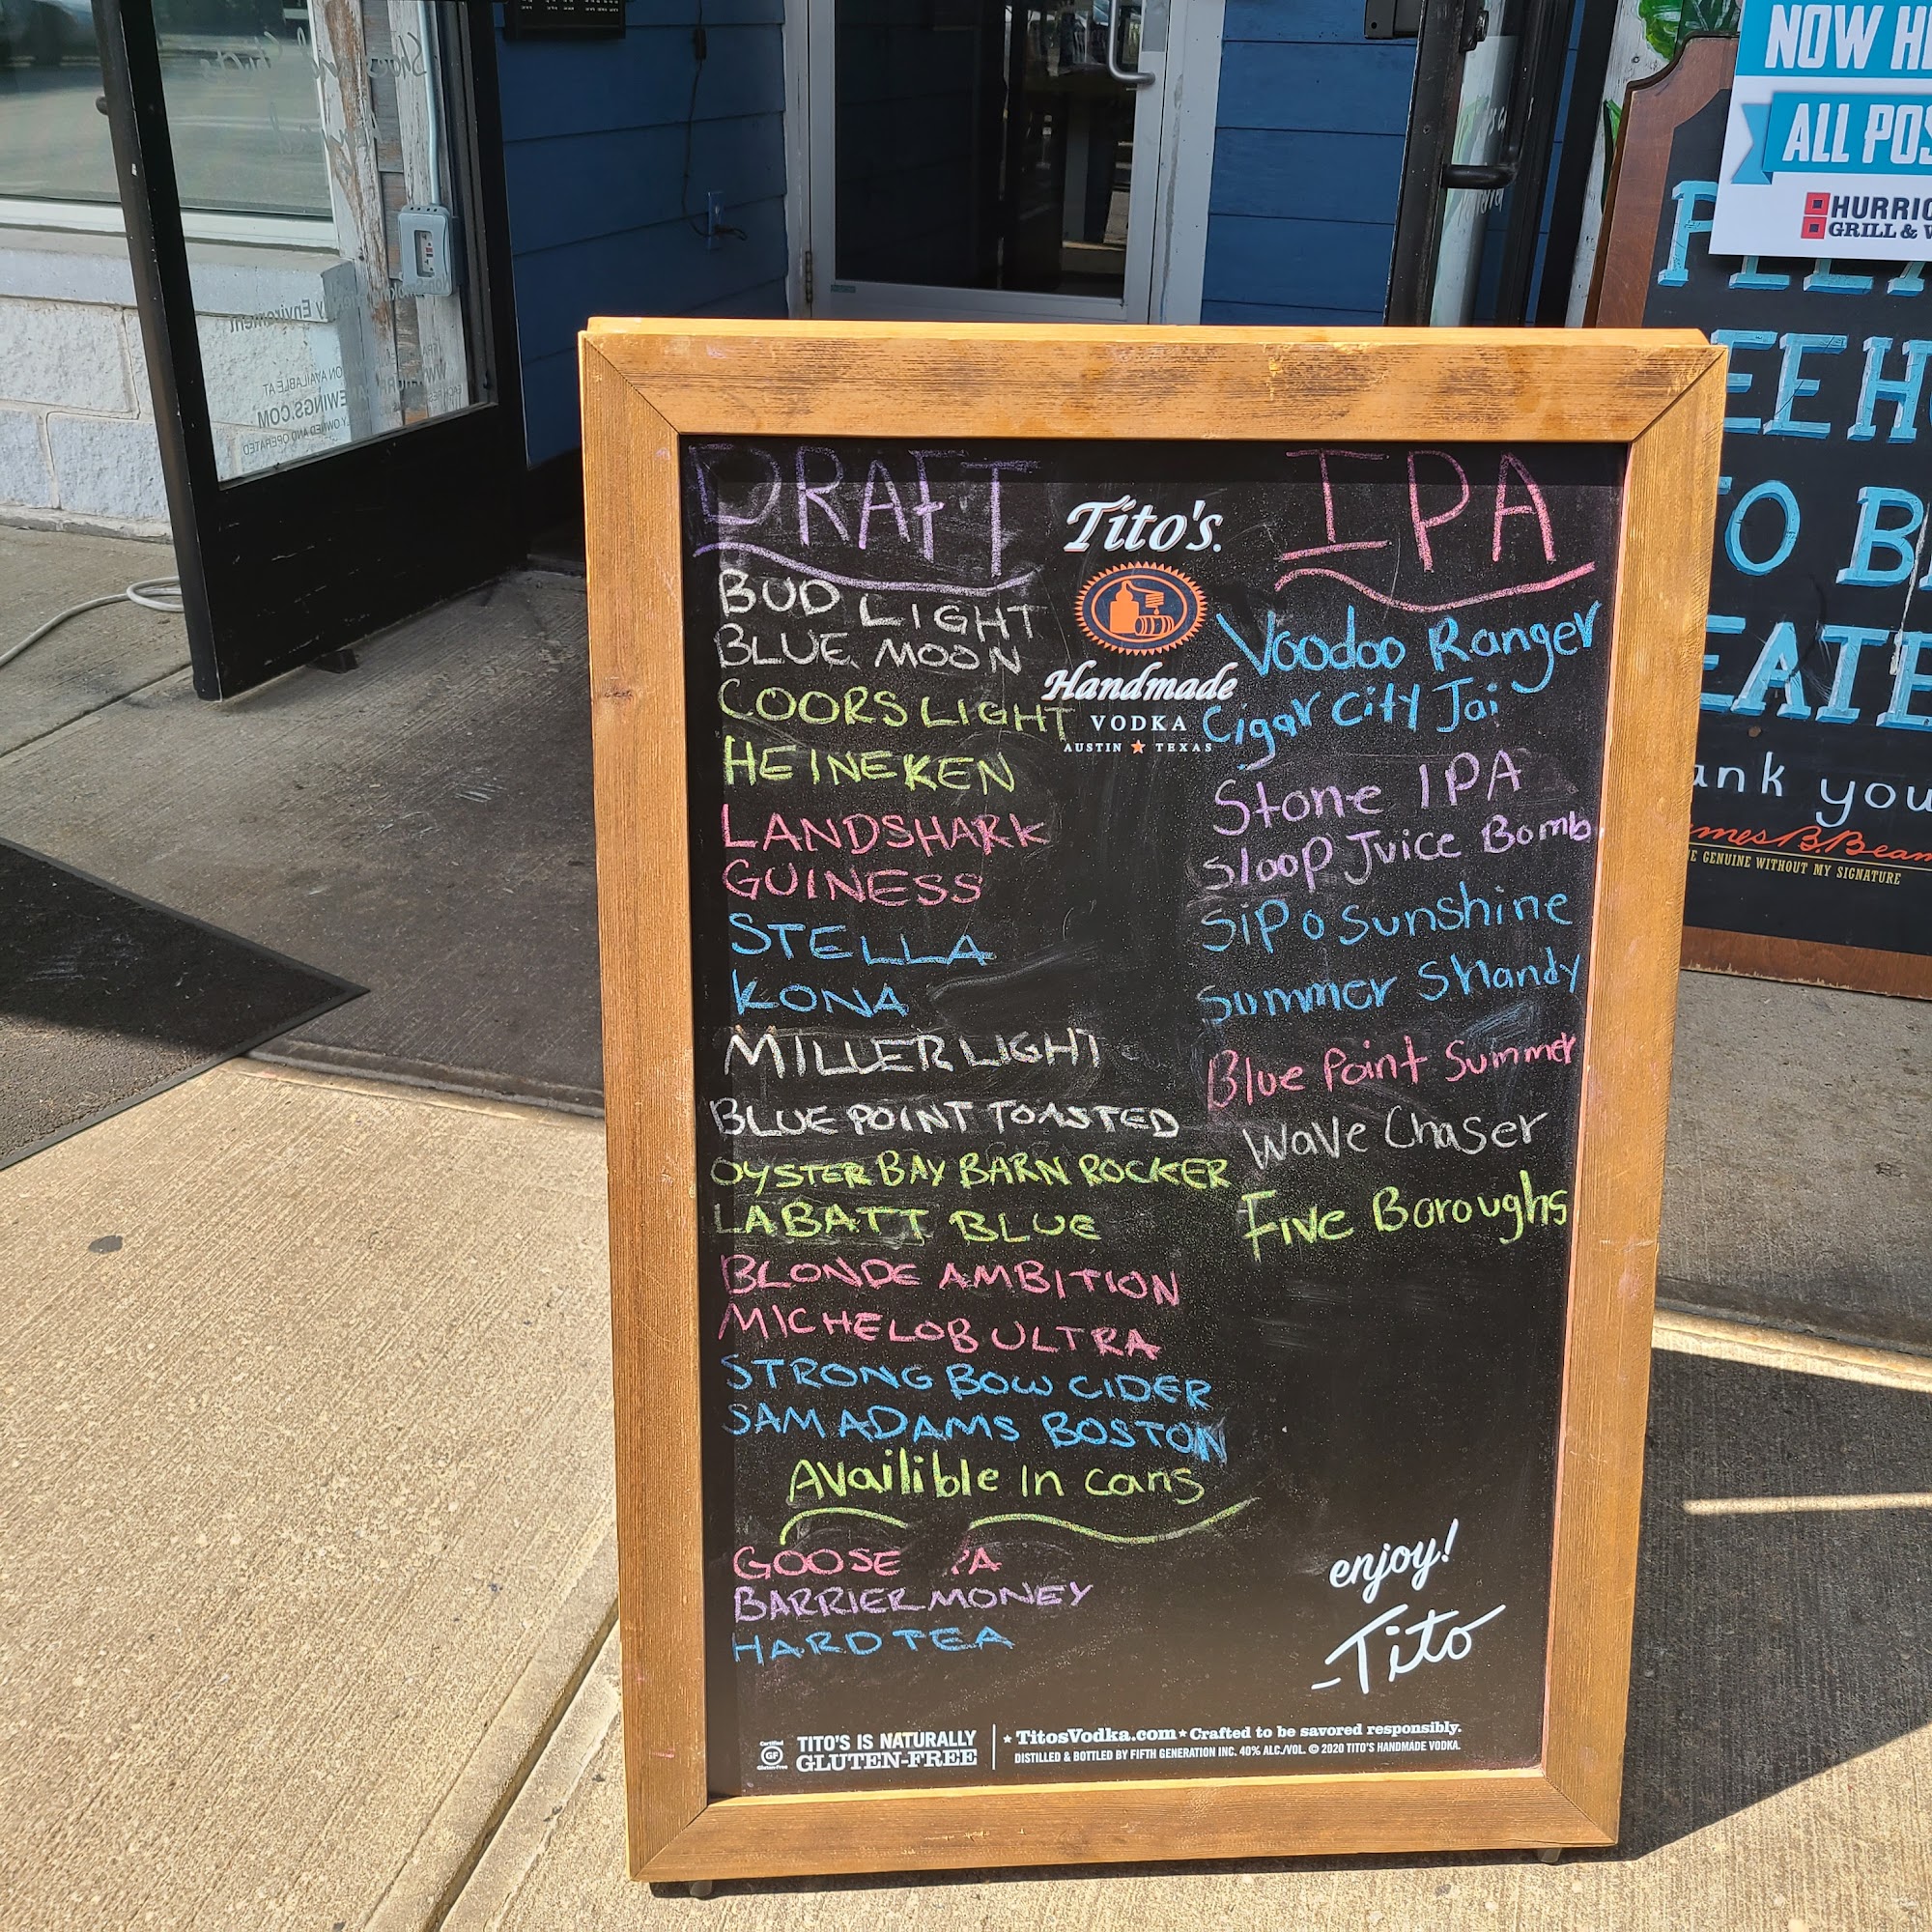 DRAFT
BUD LIGHT
BLUE MOON
COORS LIGHT
HEINEKEN
LANDSHARK
GUINESS
STELLA
KONA
MILLER LIGHT
BLUE POINT TOASTED
OYSTER BAY BARN ROCKER
LABATT BLUE
BLONDE AMBITION
MICHELOB ULTRA
STRONG BOW CIDER
SAM ADAMS BOSTON
Availible In cans
GOOSE PA
BARRIER MONEY
HARD TEA
Tito's
Handmade
VODKA
AUSTIN TEXAS
IPA
Voodoo Ranger
Cigar City Jai
Stone IPA
Sloop Juice Bomb
Sip o Sunshine
Summer Shandy
Blue Point Summer
Wave Chaser
Five Boroughs
enjoy!
-Tito
Certified
GF
Gluten-Free
TITO'S IS NATURALLY
GLUTEN-FREE
TitosVodka.com Crafted to be savored responsibly.
DISTILLED & BOTTLED BY FIFTH GENERATION INC. 40% ALC./VOL. © 2020 TITO'S HANDMADE VODKA.
NOW H
ALL POS
HURRIC
GRILL & W
PLEA
EE H
TO B
EATE
ank you
mes B. Beam
E GENUINE WITHOUT MY SIGNATURE
ON AVAILABLE AT
EWINGS.COM
Y OWNED AND OPERATED